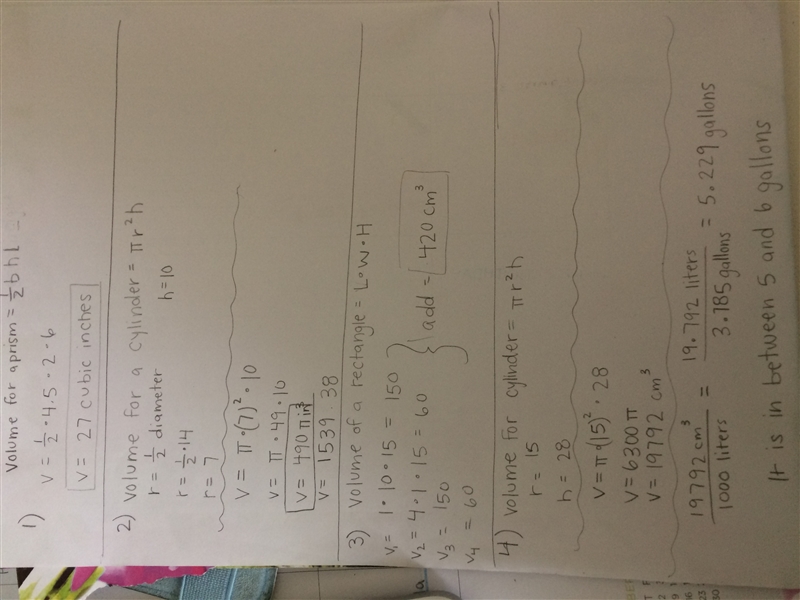 1) Volume for a prism = 1/2 b h l =
V = 1/2 • 4.5 • 2 • 6
V = 27 cubic inches
2) Volume for a cylinder = πr²h
r = 1/2 diameter h = 10
r = 1/2 • 14
r = 7
V = π • (7)² • 10
V = π • 49 • 10
V = 490 π in³
V = 1539.38
3) Volume of a rectangle = L • W • H
V₁ = 1 • 10 • 15 = 150
V₂ = 4 • 1 • 15 = 60
V₃ = 150
V₄ = 60
add = 420 cm³
4) Volume for cylinder = πr²h
r = 15
h = 28
V = π • (15)² • 28
V = 6300 π
V = 19792 cm³
19792 cm³ / 1000 liters = 19.792 liters / 3.785 gallons = 5.229 gallons
It is in between 5 and 6 gallons